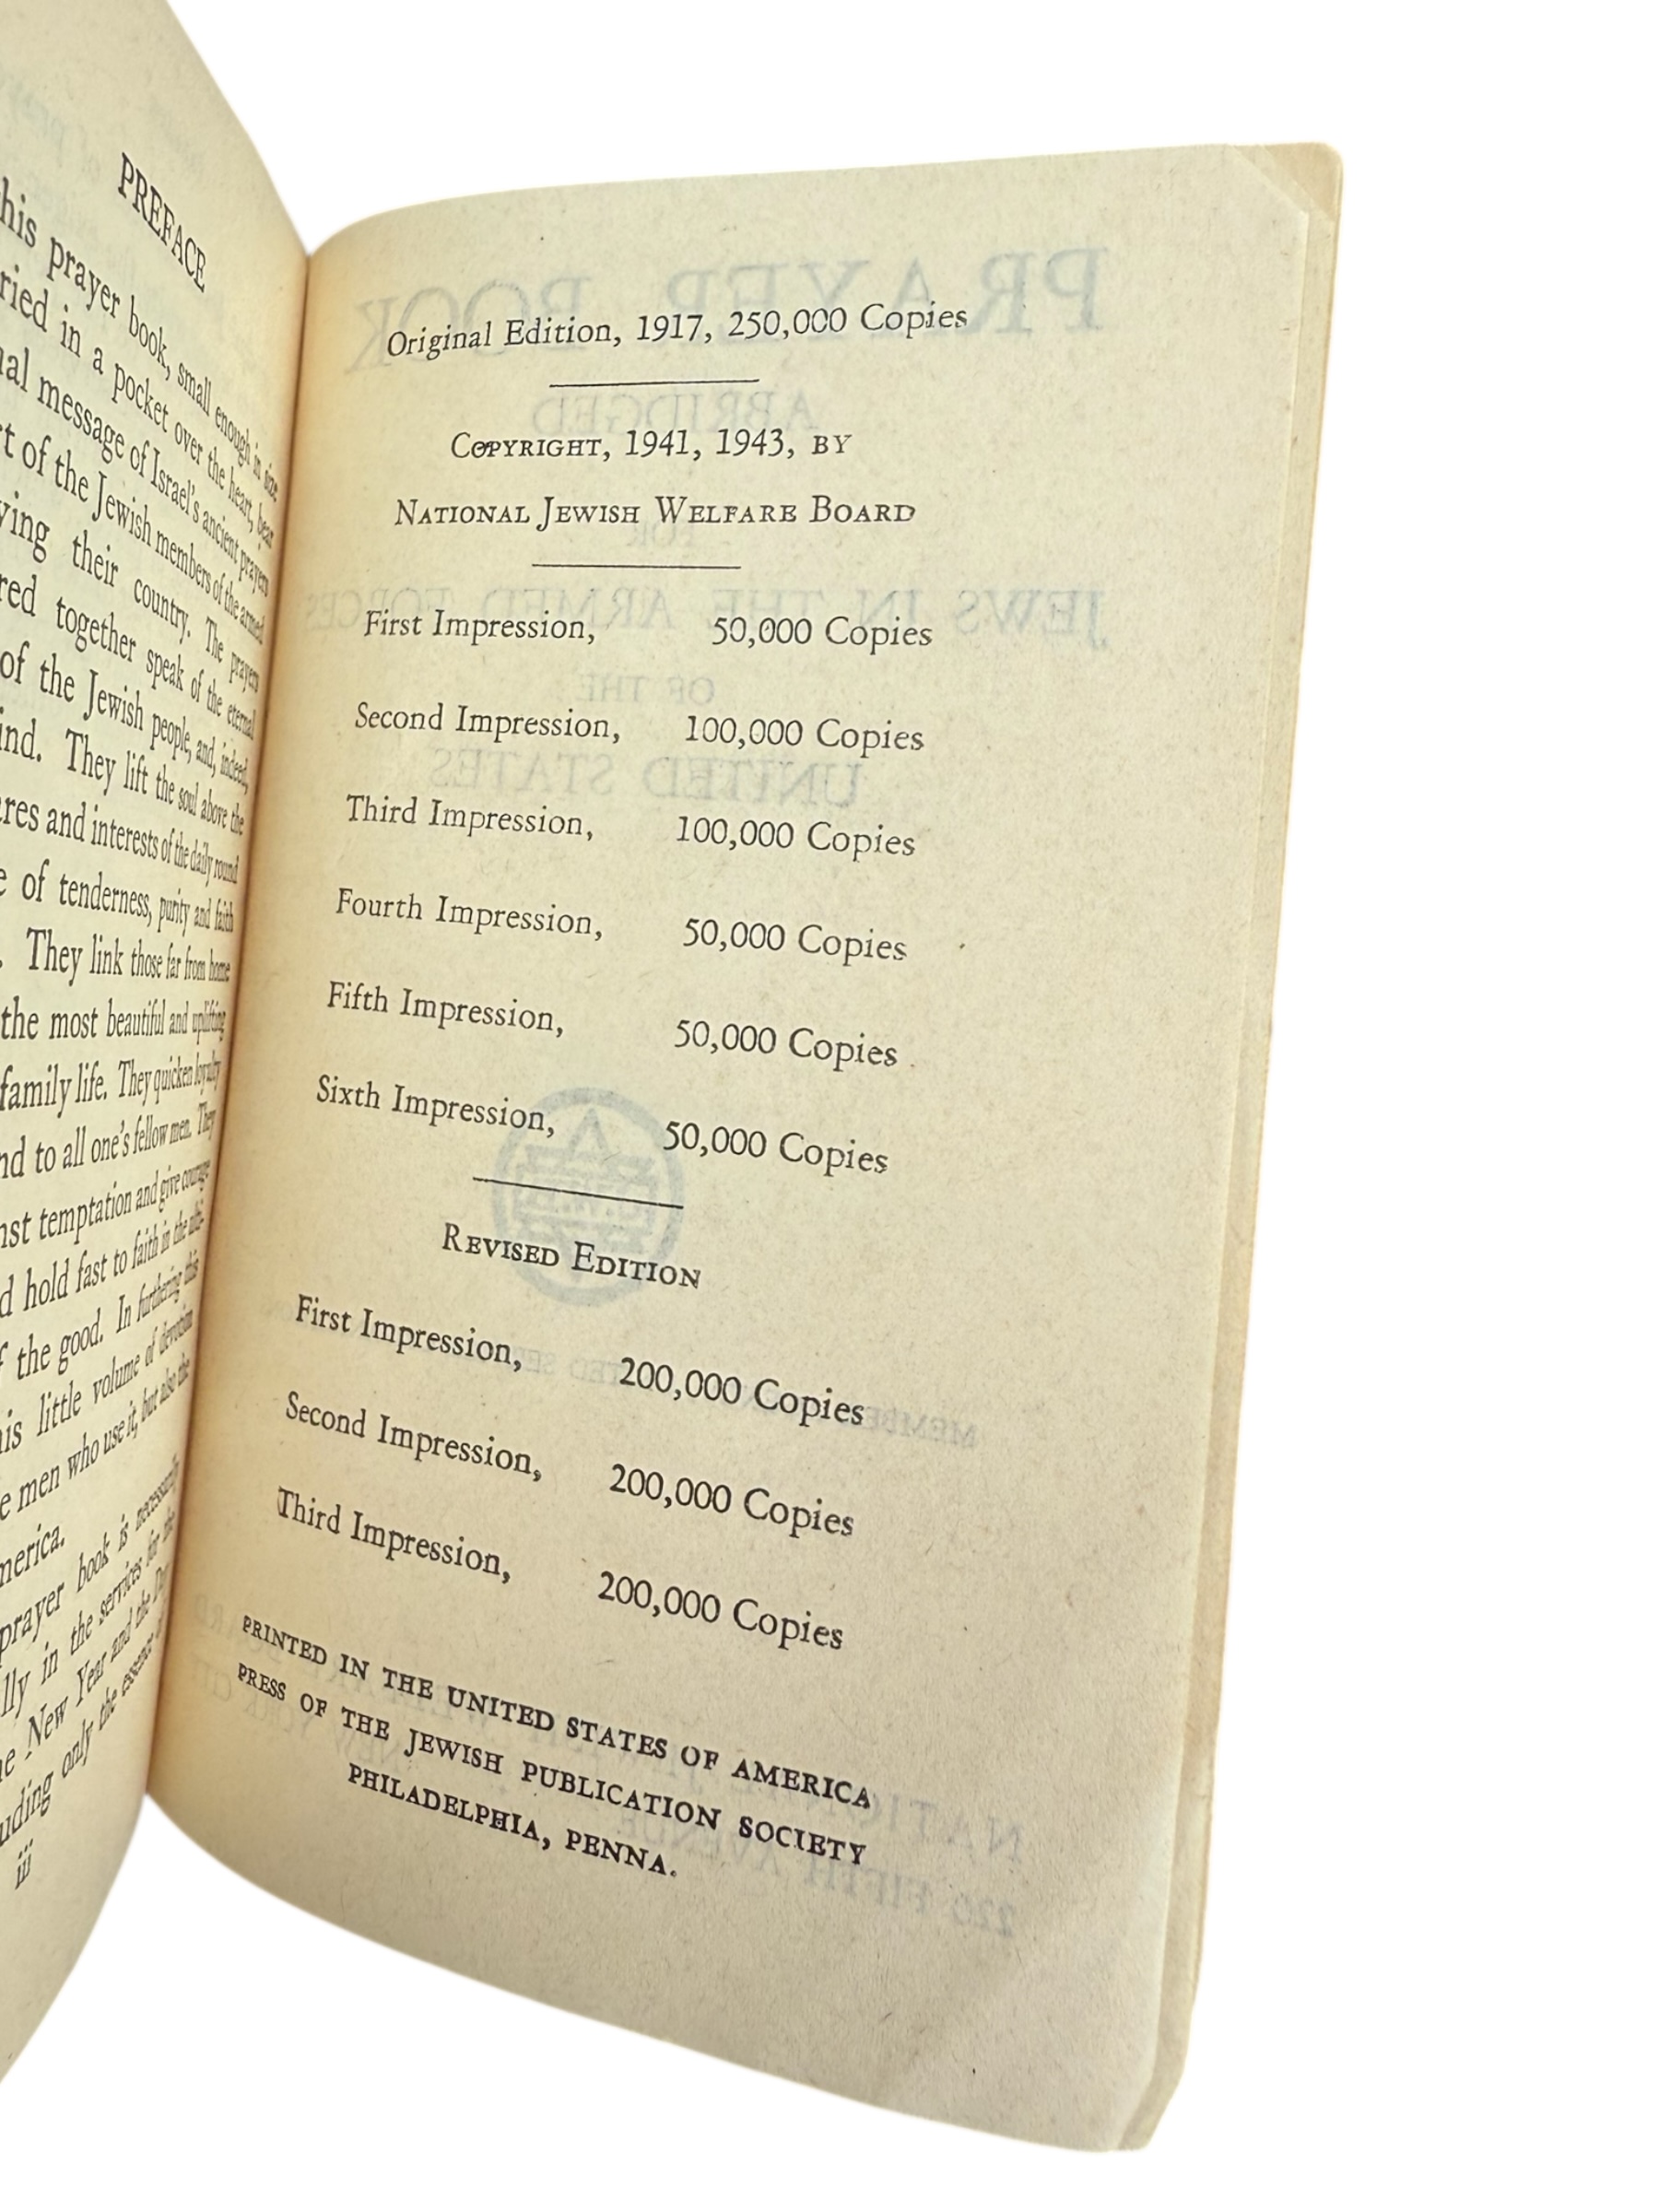 PREFACE
his prayer book, small enough in size
ried in a pocket over the heart, bear
message of Israel's ancient prayers
of the Jewish members of the armed
their country. The prayers
together speak of the eternal
of the Jewish people, and, indeed,
They lift the soul above the
and interests of the daily round
of tenderness, purity and faith
They link those far from home
the most beautiful and uplifting
family life. They quicken loyalty
to all one's fellow men. They
temptation and give courage
hold fast to faith in the
the good. In furthering this
little volume of devotion
men who use it, but also the
prayer book is necessarily
in the services for the
New Year and the Day
only the essence of
iii
Original Edition, 1917, 250,000 Copies
COPYRIGHT, 1941, 1943, BY
NATIONAL JEWISH WELFARE BOARD
First Impression, 50,000 Copies
Second Impression, 100,000 Copies
Third Impression, 100,000 Copies
Fourth Impression, 50,000 Copies
Fifth Impression, 50,000 Copies
Sixth Impression, 50,000 Copies
REVISED EDITION
First Impression, 200,000 Copies
Second Impression, 200,000 Copies
Third Impression, 200,000 Copies
PRINTED IN THE UNITED STATES OF AMERICA
PRESS OF THE JEWISH PUBLICATION SOCIETY
PHILADELPHIA, PENNA.